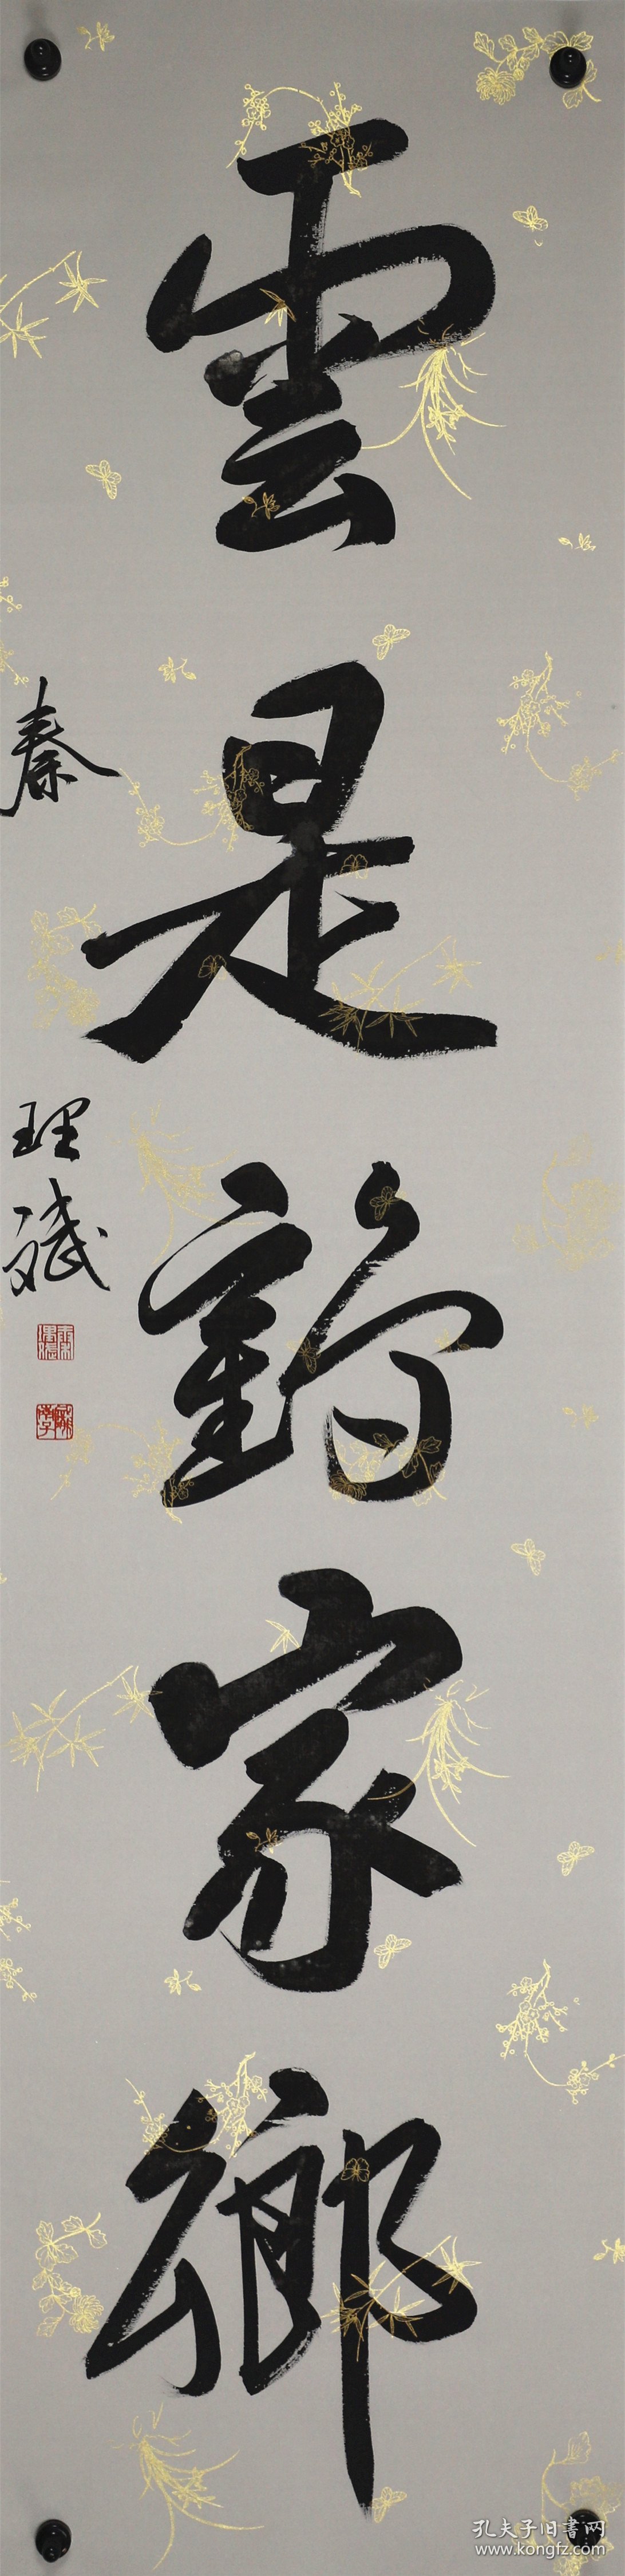 雲是鶴家鄉
秦理斌
孔夫子旧书网
www.kongfz.com